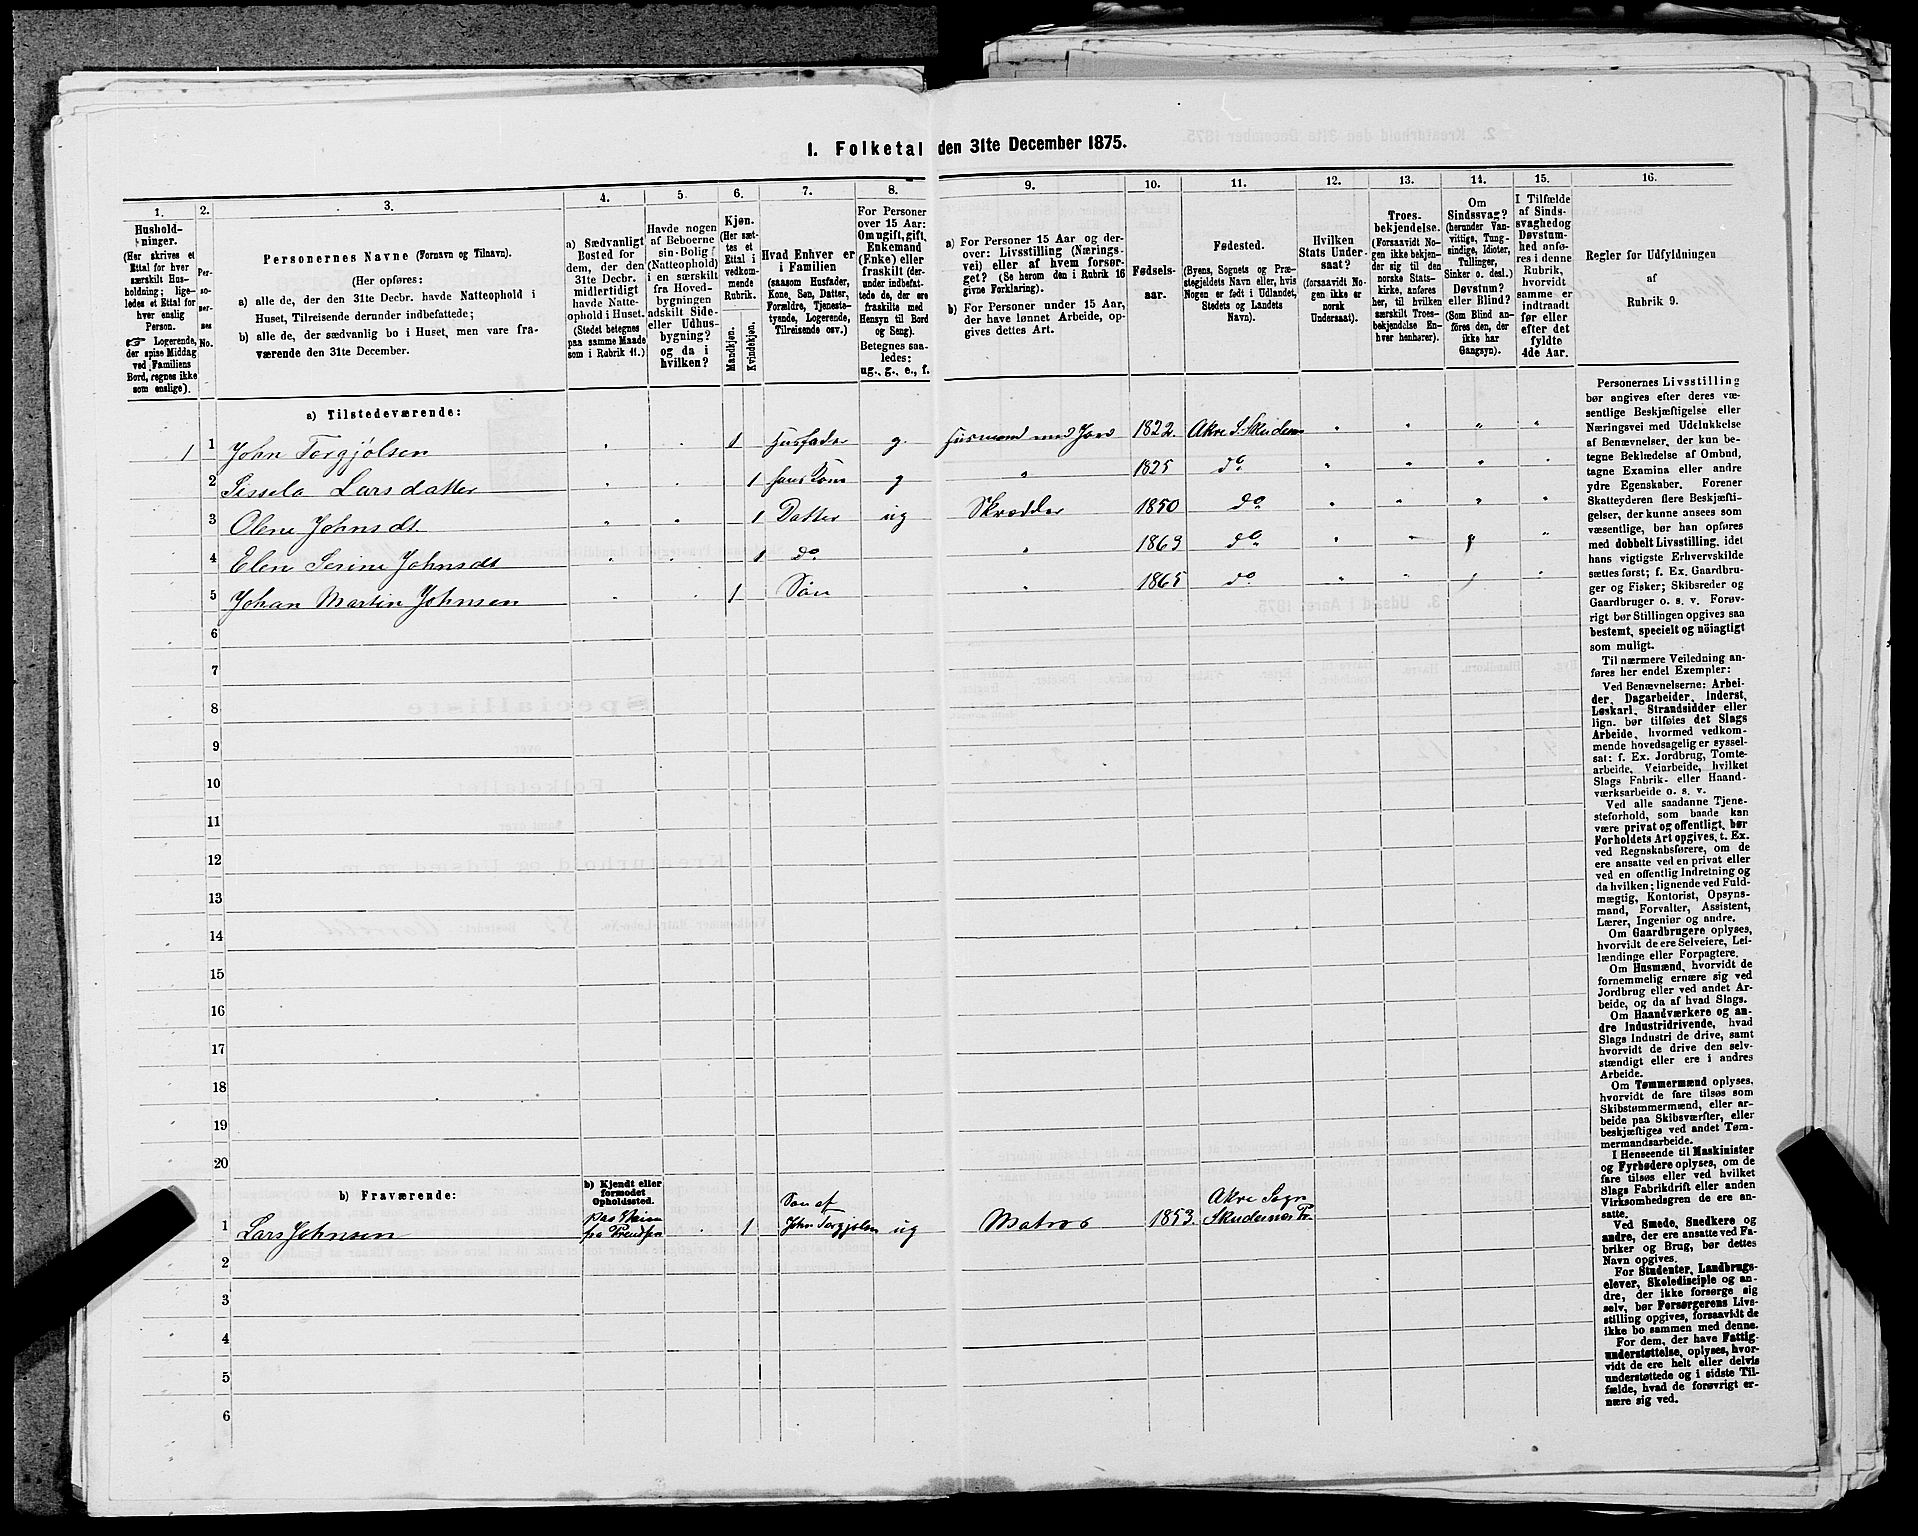 1. Folketal den 31te December 1875.
1.
2.
3.
4.
5.
6.
7.
8.
9.
10.
11.
12.
13.
14.
15.
16.
Hushold-
ninger.
(Her skrives et
Ettal for hver
særskilt Hus-
holdning; lige-
ledes et Ettal for
hver enslig
Person.
☞ Logerende,
der spise Middag
ved Familiens
Bord, regnes ikke
som enslige).
Per-
so-
ner-
nes
No.
Personernes Navne (Fornavn og Tilnavn).
(Her opføres:
a) alle de, der den 31te Decbr. havde Natteophold i
Huset, Tilreisende derunder indbefattede;
b) alle de, der sædvanlig bo i Huset, men vare fra-
værende den 31te December.
a) Sædvanligt
Bosted for
dem, der den
31te Decbr.
midlertidigt
havde Natte-
ophold i Huset.
(Stedet betegnes
paa samme Maade
som i Rubrik 11.)
Havde nogen
af Beboerne
sin Bolig
(Natteophold)
i en særskilt
fra Hoved-
bygningen
adskilt Side-
eller Udhus-
bygning?
og da i
hvilken?
Kjøn.
(Her sæt-
tes et
Ettal i
vedkom-
mende
Rubrik.
Mandkjøn.
Kvindekjøn.
Hvad Enhver er
i Familien
(saasom Husfader,
Kone, Søn, Datter,
Forældre, Tjeneste-
tyende, Logerende,
Tilreisende osv.)
For Personer
over 15 Aar:
Om ugift, gift,
Enkemand
(Enke) eller
fraskilt (der-
under indbefat-
tede de, der ere
fraskilte med
Hensyn til Bord
og Seng).
Betegnes saa-
ledes:
ug., g., e., f.
a) For Personer 15 Aar og der-
over: Livsstilling (Nærings-
vei) eller af hvem forsør-
get? (Se herom den i Rubrik 16
givne Forklaring).
b) For Personer under 15 Aar,
der have lønnet Arbeide, op-
gives dettes Art.
Fødsels-
aar.
Fødested.
(Byens, Sognets og Præ-
stegjeldets Navn eller, hvis
Nogen er født i Udlandet,
Stedets og Landets
Navn).
Hvilken
Stats Under-
saat?
(forsaavidt No-
gen ikke er
norsk
Undersaat).
Troes-
bekjendelse.
(Forsaavidt No-
gen ikke bekjen-
der sig til den
norske Stats-
kirke, anføres
her, til hvilken
særskilt Troes-
bekjendelse En-
hver henhører).
Om
Sindssvag?
(herunder Van-
vittige, Tung-
sindige, Idioter,
Tullinger,
Sinker o. desl.)
Døvstum?
eller Blind?
(Som Blind an-
føres den, der
ikke har
Gangsyn).
I Tilfælde
af Sinds-
svaghed og
Døvstum-
hed anfø-
res i denne
Rubrik,
hvorvidt
samme er
indtraadt
før eller
efter det
fyldte
4de Aar.
Regler for Udfyldningen
af
Rubrik 9.
a) Tilstedeværende:
1 1 John Torgjølsen " " 1 Husfader g. Husmand med Jord 1822. Akre S. Skudenes " " " "
2 Sissela Larsdatter " " 1 hans Kone g " 1825 do " " " "
3 Olene Johnsdt " " 1 Datter ug Skrædder 1850 do " " " "
4 Elen Serine Johnsdt " " 1 do " 1863 do " " " "
5 Johan Martin Johnsen " " 1 Søn " 1865 do " " "
6
7
8
9
10
11
12
13
14
15
16
17
18
19
20
b) Fraværende:
b) Kjendt eller
formodet
Opholdssted.
1 Lars Johnsen 1 Søn af
John Torgjølsen ug Matros 1853. Akre Sogn
Skudenes Pr.
2
3
4
5
6
Personernes Livsstilling
bør angives efter deres væ-
sentlige Beskjæftigelse eller
Næringsvei med Udelukkelse
af Benævnelser, der kun be-
tegne Beklædelse af Ombud,
tagne Examina eller andre
ydre Egenskaber. Forener
Skatteyderen flere Beskjæfti-
gelser, der kunne ansees som
væsentlige, bør han opføres
med dobbelt Livsstilling, idet
hans vigtigste Erhvervskilde
sættes først; f. Ex. Gaardbru-
ger og Fisker; Skibsreder og
Gaardbruger o. s. v. Forøv-
rigt bør Stillingen opgives saa
bestemt, specielt og nöiagtigt
som muligt.
Til nærmere Veiledning an-
føres her endel Exempler:
Ved Benævnelserne: Arbei-
der, Dagarbeider, Inderst,
Løskarl, Strandsidder eller
lign. bør tilføies det Slags
Arbeide, hvormed vedkom-
mende hovedsagelig er syssel-
sat: f. Ex. Jordbrug, Tomte-
arbeide, Veiarbeide, hvilket
Slags Fabrik- eller Haand-
værksarbeide o. s. v.
Ved alle saadanne Tjene-
steforhold, som baade kan
være privat og offentligt, bør
Forholdets Art opgives, t. Ex.
ved Regnskabsførere, om de
ere ansatte ved en privat eller
ved en offentlig Indretning og
da hvilken; lignende ved Fuld-
mægtig, Kontorist, Opsyns-
mand, Forvalter, Assistent,
Lærer, Ingeniør og andre.
Om Gaardbrugere oplyses,
hvorvidt de ere Selveiere, Lei-
lændinge eller Forpagtere.
Om Husmænd, hvorvidt de
fornemmelig ernære sig ved
Jordbrug eller ved andet Ar-
beide, og da af hvad Slags.
Om Haandværkere og an-
dre Industridrivende, hvad
Slags Industri de drive, samt
hvorvidt de drive den selv-
stændigt eller ere i andres
Arbeide.
Om Tømmermænd oplyses,
hvorvidt de fare tilsøs som
Skibstømmermænd, eller ar-
beide paa Skibsværfter, eller
beskjæftiges ved andet Tøm-
mermandsarbeide.
I Henseende til Maskinister
og Fyrbødere oplyses, om de
fare tilsøs eller ved hvilket
Slags Fabrikdrift eller anden
Virksomhedsgren de ere an-
satte.
Ved Smede, Snedkere og
andre, der ere ansatte ved Fa-
briker og Brug, bør dettes
Navn opgives.
For Studenter, Landbrugs-
elever, Skoledisciple og an-
dre, der ikke forsørge sig
selv, bør Forsørgerens Livs-
stilling opgives, forsaavidt de
ikke bo sammen med denne.
For dem, der have Fattig-
understøttelse, oplyses, hvor-
vidt de ere helt eller delvis
understøttede og i sidste Til-
fælde, hvad de forøvrigt er-
nære sig ved.